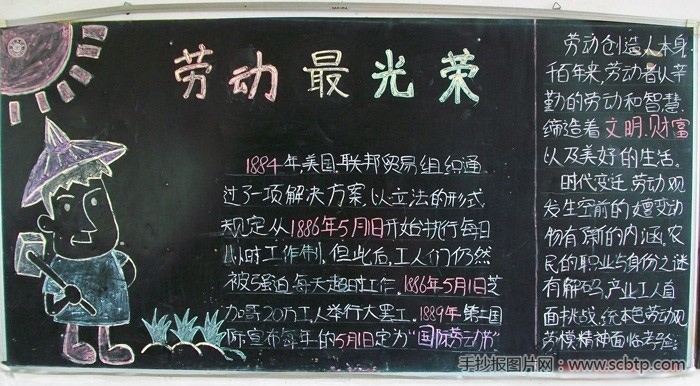 劳动最光荣
1884年,美国联邦贸易组织通
过了一项解决方案以立法的形式
规定从1886年5月1日开始执行每日
八小时工作制,但此后,工人们仍然
被强迫每天超时工作.1886年5月1日芝
加哥20万工人举行大罢工.1889年第二国
际宣布每年的5月1日定为"国际劳动节"
劳动创造人本身
千百年来,劳动者以辛
勤的劳动和智慧,
缔造着文明.财富
以及美好的生活。
时代变迁,劳动观
发生空前的嬗变动
物有了新的内涵,农
民的职业与身份之谜
有解码,产业工人直
面挑战,传统本色劳动观
劳模精神面临考验:
手抄报图片网:www.scbtp.com